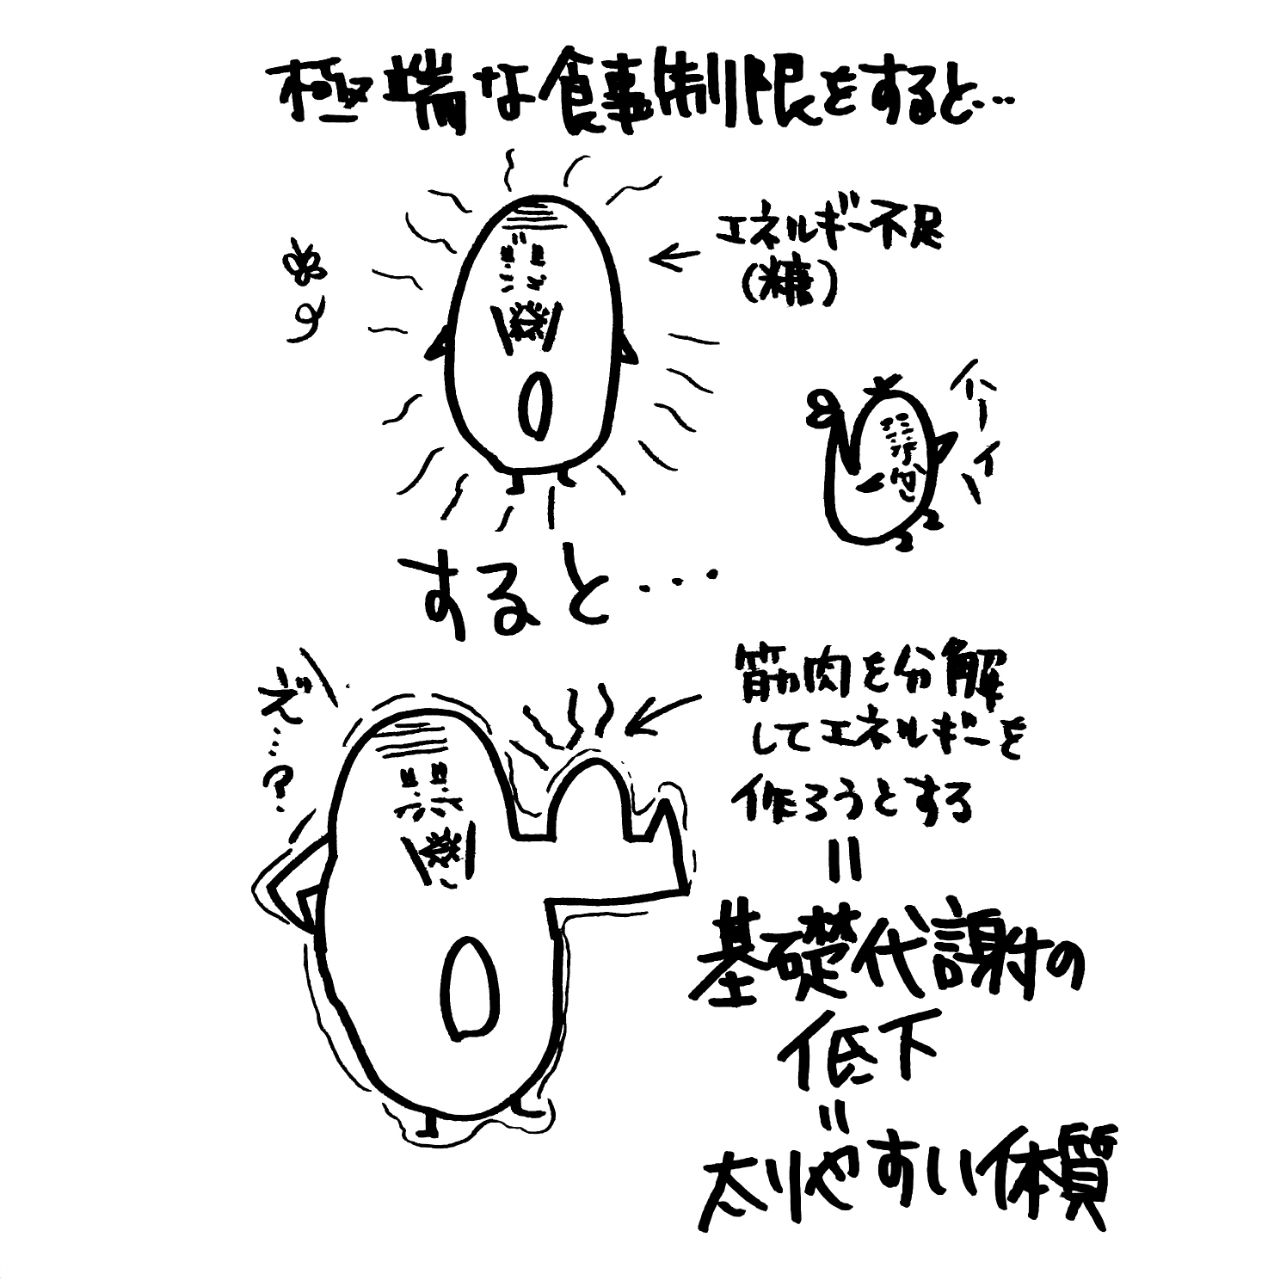 極端な食事制限をすると…
エネルギー不足
(糖)
ハーイ
すると…
え"…?
筋肉を分解
してエネルギーを
作ろうとする
=
基礎代謝の
低下
=
太りやすい体質